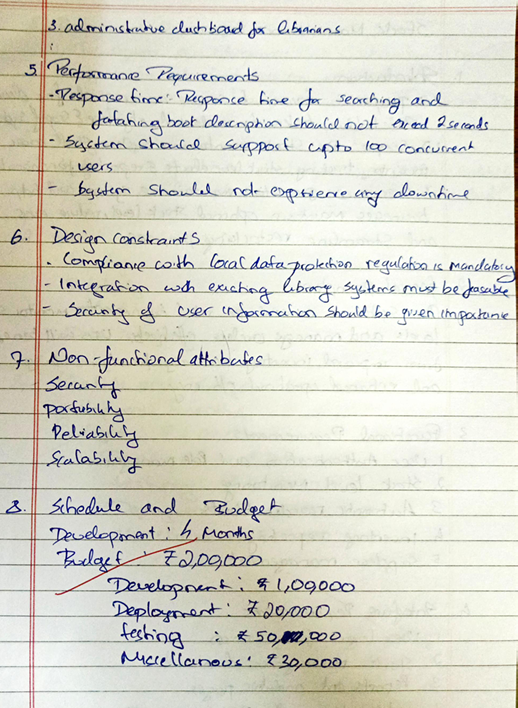 3. administrative dashboard for librarians
:
5. Performance Requirements
- Response time: Response time for searching and
fetching book description should not exceed 2 seconds
- System should support upto 100 concurrent
users
- System should not exprience any downtime
6. Design constraints
- Compliance with local data protection regulation is mandatory
- Integration with existing library systems must be feasable
- Security of user information should be given importance
7. Non-functional attributes
Security
portability
Reliability
Scalability
8. Schedule and Budget
Development : 4 Months
Budget : ₹2,00,000
Development : ₹1,00,000
Deployment : ₹20,000
testing : ₹50,000
Miscellanous : ₹30,000